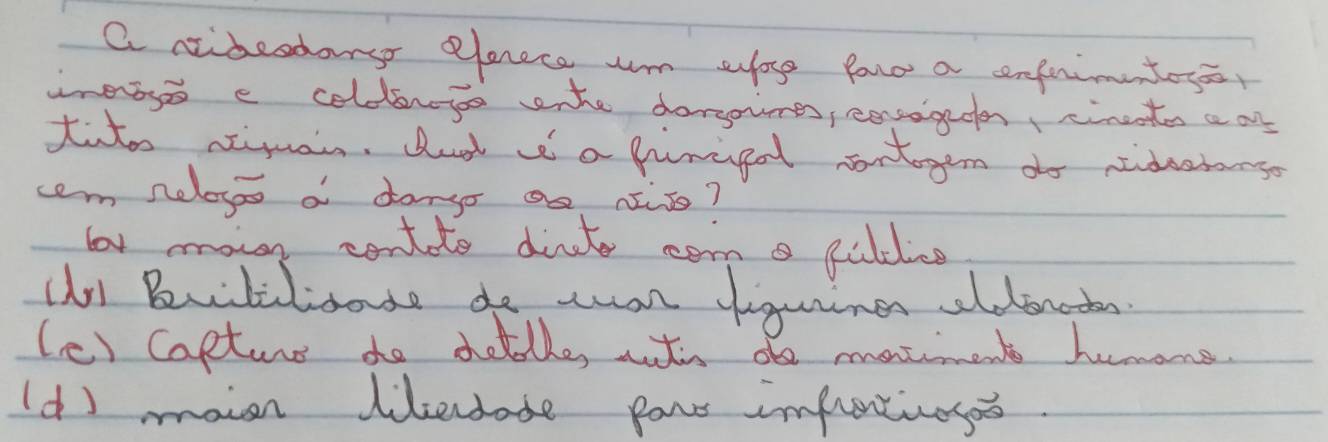 A videodança oferece um espaço para a experimentação,
inovação e colaboração entre dançarinos, coreógrafos, cineastas e ar
tistas visuais. Qual é a principal vantagem da videodança
em relação á dança ao vivo?
(a) maior contato direto com o público
(b) de usar figurinos elaborados.
(c) Captura de detalhes sutis do movimento humano.
(d) maior liberdade para improvisação.